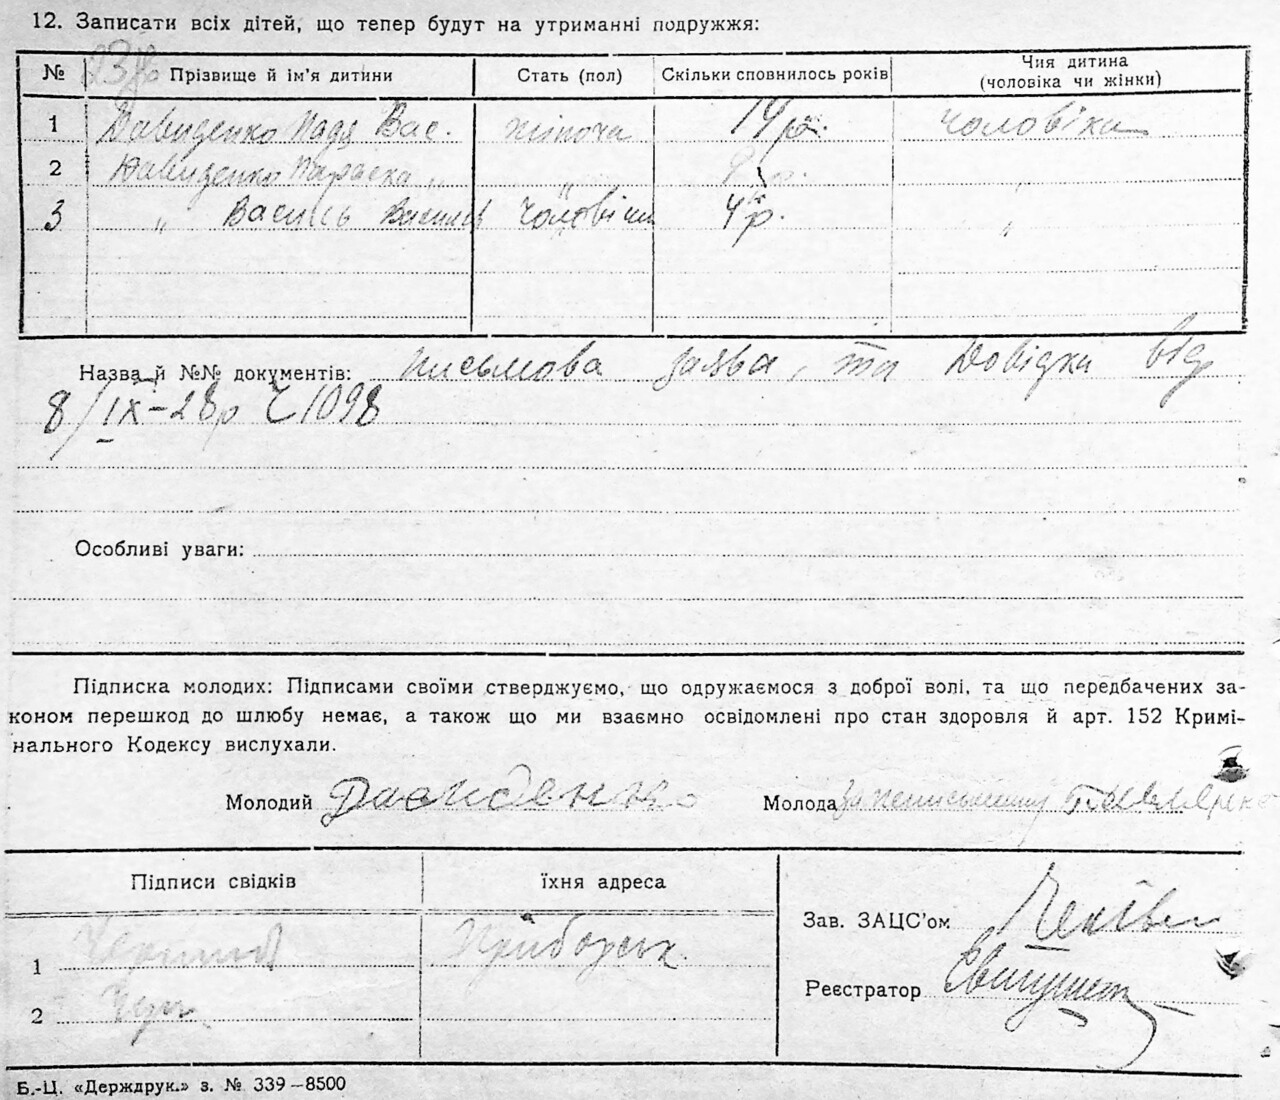 12. Записати всіх дітей, що тепер будут на утриманні подружжя:
№ Прізвище й ім'я дитини Стать (пол) Скільки сповнилось років Чия дитина (чоловіка чи жінки)
1 Давиденко Надя Вас. жіноча 14 р. чоловіка
2 Давиденко Параска „ „ р. „
3 „ Василь Васильев чоловіча 4 р. „
Назва й №№ документів: письмова заява, та довідка від
8/IX-28р Ч 1098
Особливі уваги:
Підписка молодих: Підписами своїми стверджуємо, що одружаємося з доброї волі, та що передбачених за-
коном перешкод до шлюбу немає, а також що ми взаємно освідомлені про стан здоровля й арт. 152 Кримі-
нального Кодексу вислухали.
Молодий Давиденко Молода за неписьменну
Підписи свідків їхня адреса
Зав. ЗАЦС'ом
1 Приборськ.
Реєстратор
2
Б.-Ц. «Держдрук.» з. № 339–8500